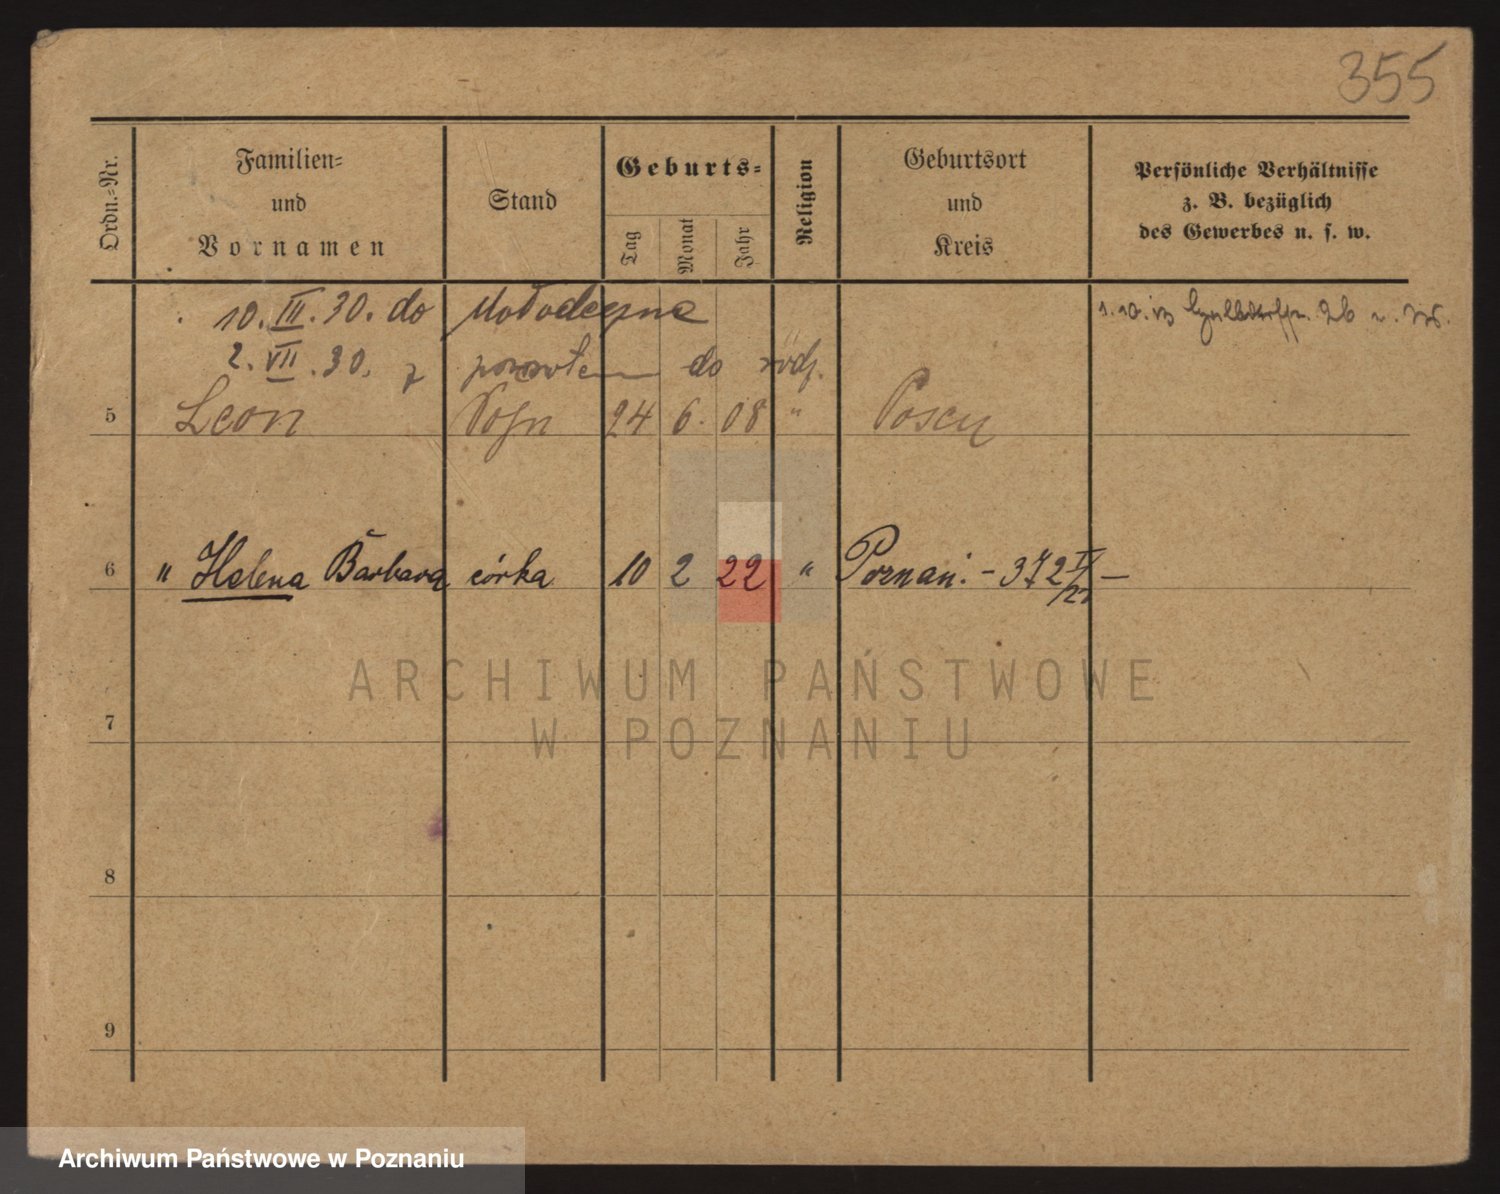 355
Ordn.=Nr.
Familien=
und
Vornamen
Stand
Geburts=
Tag
Monat
Jahr
Religion
Geburtsort
und
Kreis
Persönliche Verhältnisse
z. B. bezüglich
des Gewerbes u. s. w.
10. III. 30. do
2. VII. 30. z powrotem do rodz.
5 Leon Sohn 24 6. 08 " Posen
6 " Helena Barbara córka 10 2 22 " Poznań. - 372 II/22 —
7
8
9
ARCHIWUM PAŃSTWOWE
W POZNANIU
Archiwum Państwowe w Poznaniu